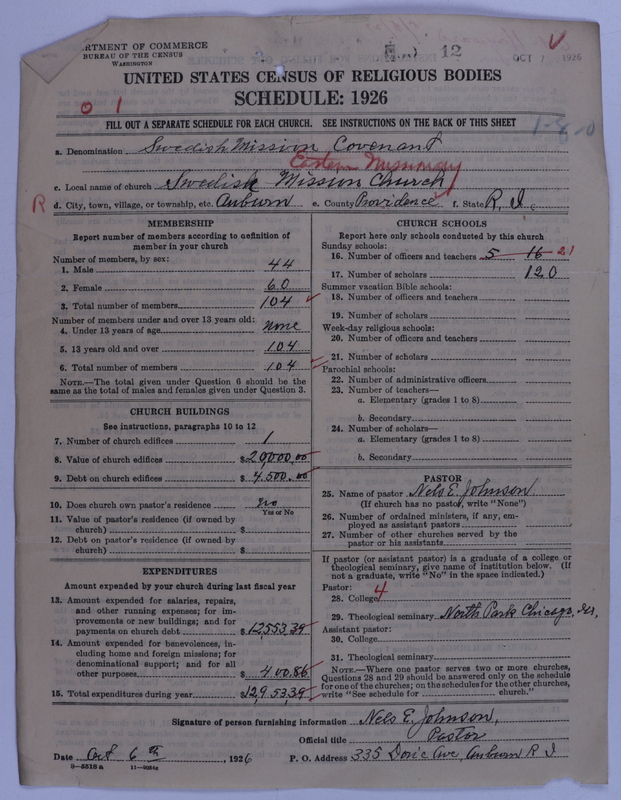 DEPARTMENT OF COMMERCE
BUREAU OF THE CENSUS
WASHINGTON
12
OCT 1926
UNITED STATES CENSUS OF RELIGIOUS BODIES
SCHEDULE: 1926
0 1
FILL OUT A SEPARATE SCHEDULE FOR EACH CHURCH. SEE INSTRUCTIONS ON THE BACK OF THIS SHEET
1-8-0
a. Denomination Swedish Mission Covenant
Eastern Missionary
c. Local name of church Swedish Mission Church
R
d. City, town, village, or township, etc. Auburn e. County Providence f. State R. I.
MEMBERSHIP
Report number of members according to definition of member in your church
Number of members, by sex:
1. Male 44
2. Female 60
3. Total number of members 104
Number of members under and over 13 years old:
4. Under 13 years of age none
5. 13 years old and over 104
6. Total number of members 104
NOTE.—The total given under Question 6 should be the same as the total of males and females given under Question 3.
CHURCH BUILDINGS
See instructions, paragraphs 10 to 12
7. Number of church edifices 1
8. Value of church edifices $20000.00
9. Debt on church edifices $4.500.00
10. Does church own pastor's residence no
Yes or No
11. Value of pastor's residence (if owned by church) $
12. Debt on pastor's residence (if owned by church) $
EXPENDITURES
Amount expended by your church during last fiscal year
13. Amount expended for salaries, repairs, and other running expenses; for improvements or new buildings; and for payments on church debt $12,553.39
14. Amount expended for benevolences, including home and foreign missions; for denominational support; and for all other purposes $400.86
15. Total expenditures during year $12,953.39
CHURCH SCHOOLS
Report here only schools conducted by this church
Sunday schools:
16. Number of officers and teachers 5 16 21
17. Number of scholars 120
Summer vacation Bible schools:
18. Number of officers and teachers
19. Number of scholars
Week-day religious schools:
20. Number of officers and teachers
21. Number of scholars
Parochial schools:
22. Number of administrative officers
23. Number of teachers—
a. Elementary (grades 1 to 8)
b. Secondary
24. Number of scholars—
a. Elementary (grades 1 to 8)
b. Secondary
PASTOR
25. Name of pastor Nels E. Johnson
(If church has no pastor, write "None")
26. Number of ordained ministers, if any, employed as assistant pastors
27. Number of other churches served by the pastor or his assistants
If pastor (or assistant pastor) is a graduate of a college or theological seminary, give name of institution below. (If not a graduate, write "No" in the space indicated.)
Pastor:
28. College 4
29. Theological seminary North Park Chicago, Ill.
Assistant pastor:
30. College
31. Theological seminary
NOTE.—Where one pastor serves two or more churches, Questions 28 and 29 should be answered only on the schedule for one of the churches; on the schedules for the other churches, write "See schedule for church."
Signature of person furnishing information Nels E. Johnson,
Official title Pastor
Date Oct 6th, 1926 P. O. Address 335 Doric Ave, Auburn R I
8-5518 a 11-9024